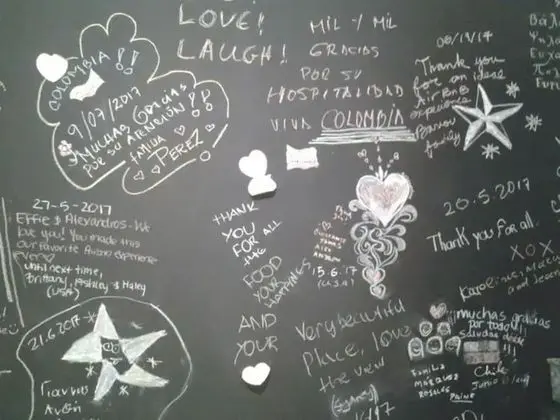 LOVE!
LAUGH!
MIL Y MIL
GRACIAS
POR SU
HOSPITALIDAD
VIVA COLOMBIA
COLOMBIA!!
9/07/2017
MUCHAS GRACIAS!!
POR SU ATENCIÓN
FAMILIA
PEREZ
Thank you
for an ideal
AirBnB
experience
family
27-5-2017
Effie & Alexandros. We
love you! You made this
our favorite Airbnb experience
ever
until next time,
Brittany, Ashley & Haley
(USA)
THANK
YOU
FOR ALL
THE
FOOD
YOUR
AND
YOUR
15.6.17
(USA)
20.5.2017
Thank you for all
XOX
21.6.2017
Γιάννης
Very beautiful
Place, love
the view
muchas gracias
por todo!!!
saludos desde
Chile
Junio
Familia
MARQUEZ
ROSALES